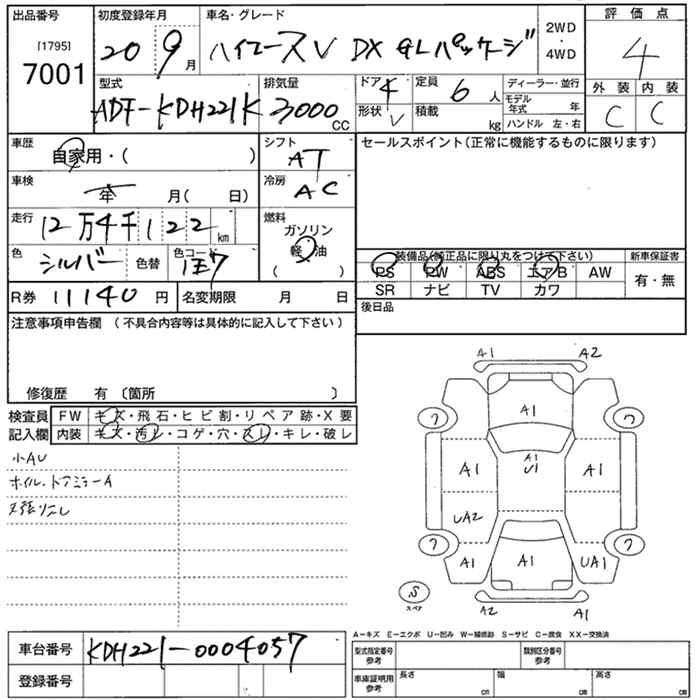 出品番号 初度登録年月 車名・グレード 評価点
[1795]
7001 20 9月 ハイエースV DX GLパッケージ 2WD・4WD 4
型式 排気量 ドア 4 定員 6人 ディーラー・並行 外装 内装
ADF-KDH221K 3000CC 形状 V 積載 kg モデル年式 年 C C
ハンドル 左・右
車歴 自家用・( ) シフト AT セールスポイント(正常に機能するものに限ります)
車検 年 月( 日) 冷房 AC
走行 12万4千122km 燃料 ガソリン
色 シルバー 色替 色コード 1E7 軽油 ( )
装備品(純正品に限り丸をつけて下さい) 新車保証書
PS PW ABS エアB AW 有・無
SR ナビ TV カワ
R券 11140円 名変期限 月 日 後日品
注意事項申告欄 (不具合内容等は具体的に記入して下さい)
修復歴 有 〔箇所 〕
検査員記入欄 FW キズ・飛石・ヒビ割・リペア跡・X要
内装 キズ・汚レ・コゲ・穴・スレ・キレ・破レ
小AU
ホイル、ドアミラーA
A1 A2
A1
ワ ワ
A1 A1 U1 A1
UA2
ワ ワ
A1 A1 UA1
S
スペア
A2 A1
A-キズ E-エクボ U-凹み W-補修跡 S-サビ C-腐食 XX-交換済
車台番号 KDH221-0004057
型式指定番号 参考 類別区分番号 参考
登録番号
車庫証明用 参考 長さ cm 幅 cm 高さ cm